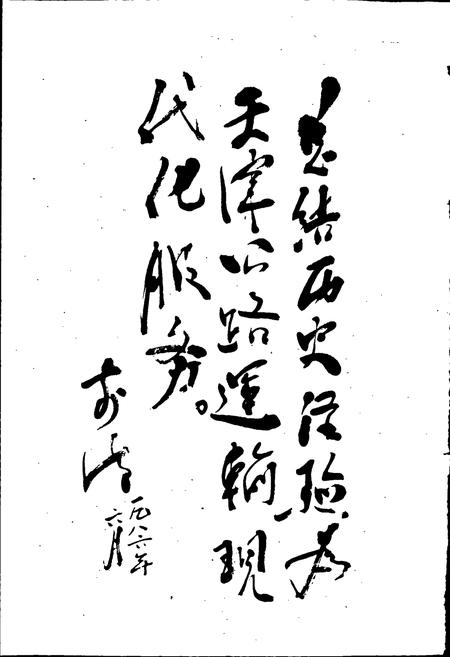 总结历史经验为
天津公路运输现
代化服务。
一九八六年
六月